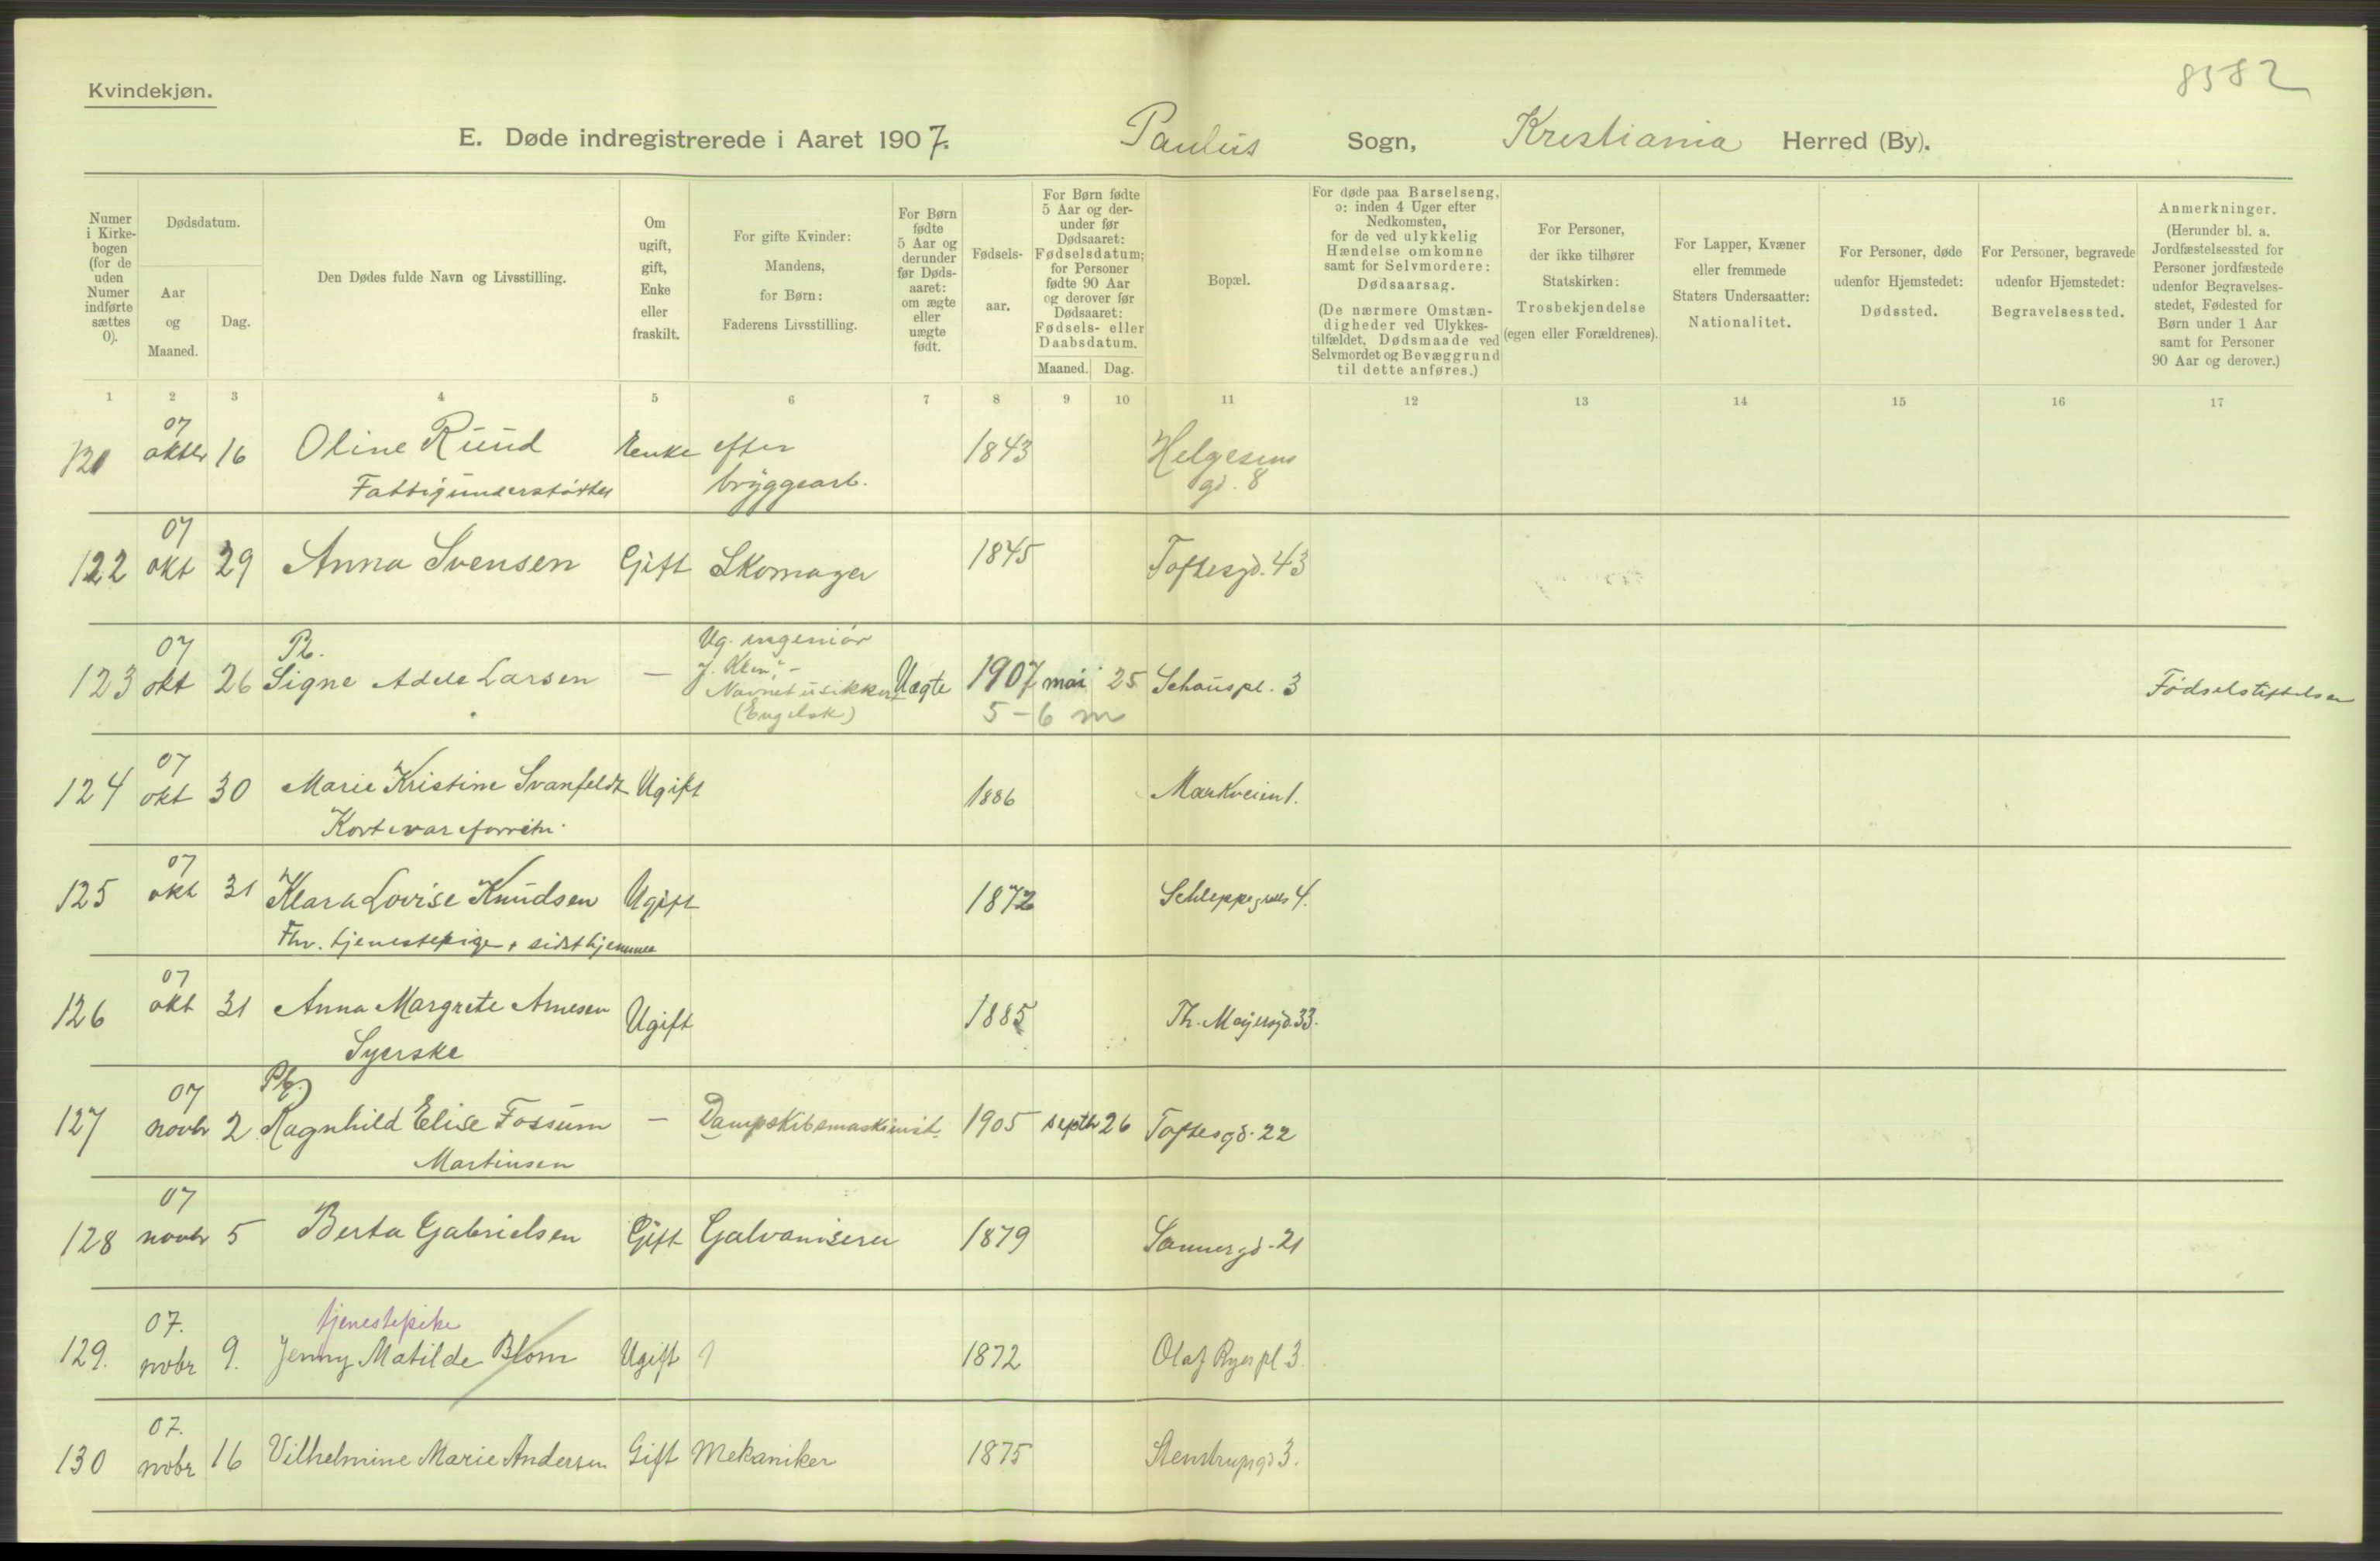 8582
Kvindekjøn.
E. Døde indregistrerede i Aaret 1907. Paulus Sogn, Kristiania Herred (By).
Numer i Kirke-bogen (for de uden Numer indførte sættes 0).
Dødsdatum.
Aar og Maaned.
Dag.
Den Dødes fulde Navn og Livsstilling.
Om ugift, gift, Enke eller fraskilt.
For gifte Kvinder: Mandens, for Børn: Faderens Livsstilling.
For Børn fødte 5 Aar og derunder før Døds-aaret: om ægte eller uægte født.
Fødsels-aar.
For Børn fødte 5 Aar og der-under før Dødsaaret: Fødselsdatum; for Personer fødte 90 Aar og derover før Dødsaaret: Fødsels- eller Daabsdatum.
Maaned. Dag.
Bopæl.
For døde paa Barselseng, ɔ: inden 4 Uger efter Nedkomsten, for de ved ulykkelig Hændelse omkomne samt for Selvmordere: Dødsaarsag.
(De nærmere Omstæn-digheder ved Ulykkes-tilfældet, Dødsmaade ved Selvmordet og Bevæggrund til dette anføres.)
For Personer, der ikke tilhører Statskirken: Trosbekjendelse (egen eller Forældrenes).
For Lapper, Kvæner eller fremmede Staters Undersaatter: Nationalitet.
For Personer, døde udenfor Hjemstedet: Dødssted.
For Personer, begravede udenfor Hjemstedet: Begravelsessted.
Anmerkninger. (Herunder bl. a. Jordfæstelsessted for Personer jordfæstede udenfor Begravelses-stedet, Fødested for Børn under 1 Aar samt for Personer 90 Aar og derover.)
1 2 3 4 5 6 7 8 9 10 11 12 13 14 15 16 17
07
121 oktbr 16 Oline Ruud Enke efter 1843 Helgesens
Fattigunderstøttet bryggearb. gd. 8
07
122 okt 29 Anna Svensen Gift Skomager 1845 Toftesgd. 43
07 Pb. Ug. ingeniør
123 okt 26 Signe Adele Larsen — Uægte 1907 mai 25 Schouspl. 3 Fødselstiftelsen
Navnet usikkert
(Engelsk) 5-6 m
07
124 okt 30 Marie Kristine Svanfeldt Ugift 1886 Markveien 1.
Kortevareforretn.
07
125 okt 31 Klara Lovise Knudsen Ugift 1872 Schleppegrells 4.
Fhv. tjenestepige, sidst hjemme
07
126 okt 31 Anna Margrete Arnesen Ugift 1885 Th. Meyersgd. 33.
Syerske
07 Pb.
127 novbr 2 Ragnhild Elise Fossum — Dampskibsmaskinist 1905 septbr 26 Toftesgd. 22
Martinsen
07
128 novbr 5 Berta Gabrielsen Gift Galvaniserer 1879 Sannergd. 21
07. tjenestepike
129. nvbr 9. Jenny Matilde Blom Ugift 1872 Olaf Ryes pl 3.
07.
130 nvbr 16 Vilhelmine Marie Andersen Gift Mekaniker 1875 Stenstrupsgd 3.